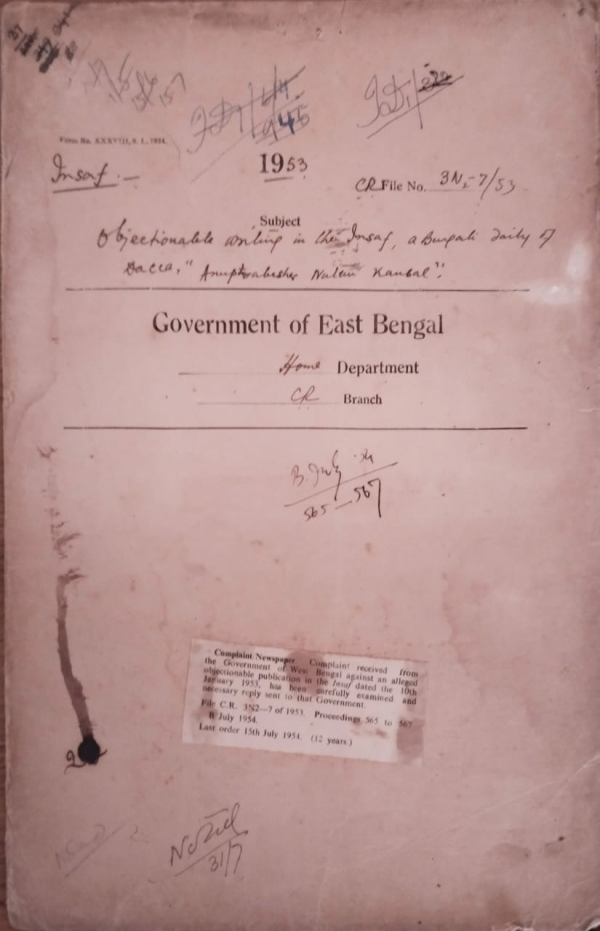 Form No. XXXVIII, S. I., 1934.
1953
Insaf. —
CR File No. 3N2-7/53
Subject
Objectionable writing in the Insaf, a Bengali daily of
Dacca, "
Government of East Bengal
Home Department
CR Branch
B. July 54
565—567
Complaint Newspaper Complaint received from
the Government of West Bengal against an alleged
objectionable publication in the Insaf dated the 10th
January 1953, has been carefully examined and
necessary reply sent to that Government.
File C.R. 3N2—7 of 1953. Proceedings 565 to 567
B July 1954.
Last order 15th July 1954. (12 years)
Noted
31/7